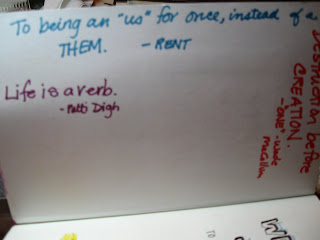 To being an "us" for once, instead of a
THEM. - RENT
Life is a verb.
- Patti Digh
DESTRUCTION before
CREATION.
- "ONE" - Wade
McCollum
TO